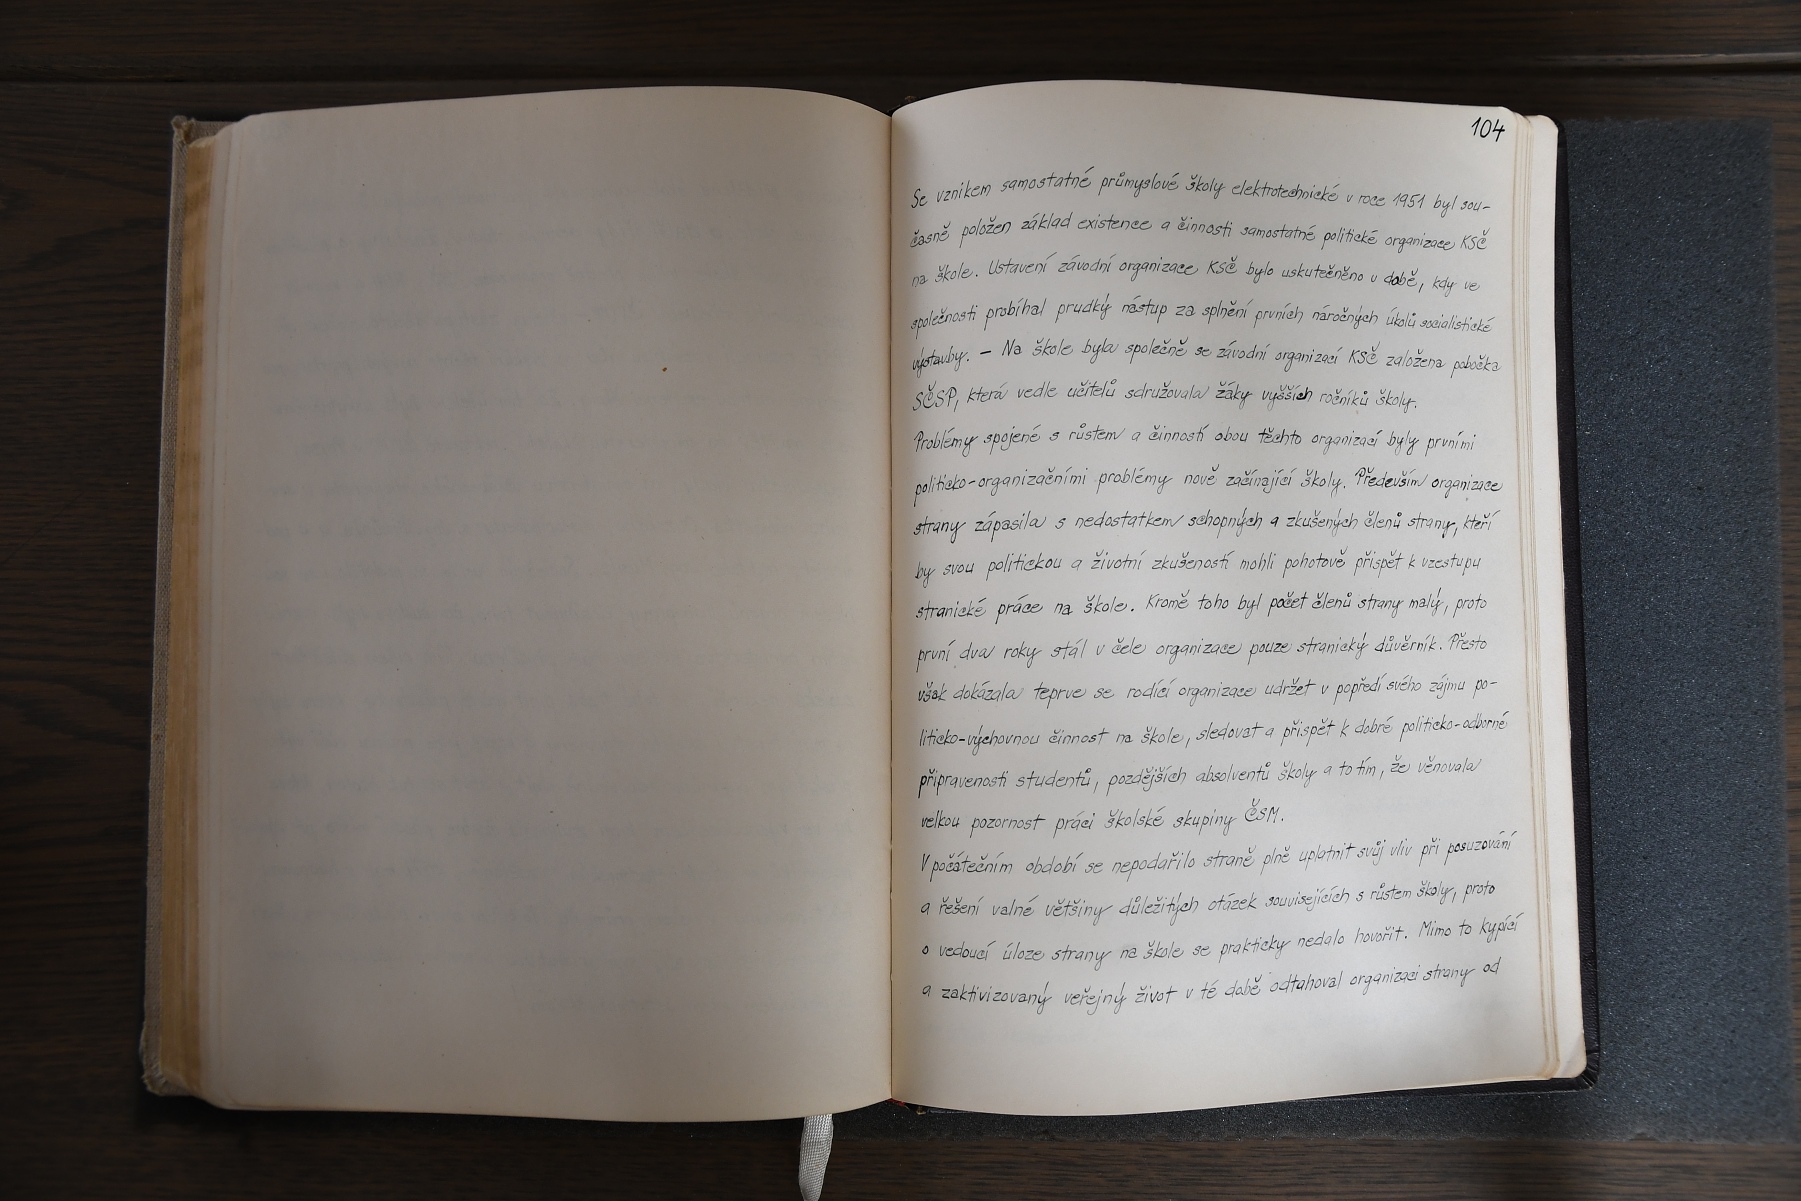 104
Se vznikem samostatné průmyslové školy elektrotechnické v roce 1951 byl sou-
časně položen základ existence a činnosti samostatné politické organizace KSČ
na škole. Ustavení závodní organizace KSČ bylo uskutečněno v době, kdy ve
společnosti probíhal prudký nástup za splnění prvních náročných úkolů socialistické
výstavby. – Na škole byla společně se závodní organizací KSČ založena pobočka
SČSP, která vedle učitelů sdružovala žáky vyšších ročníků školy.
Problémy spojené s růstem a činností obou těchto organizací byly prvními
politicko-organizačními problémy nově začínající školy. Především organizace
strany zápasila s nedostatkem schopných a zkušených členů strany, kteří
by svou politickou a životní zkušeností mohli pohotově přispět k vzestupu
stranické práce na škole. Kromě toho byl počet členů strany malý, proto
první dva roky stál v čele organizace pouze stranický důvěrník. Přesto
však dokázala teprve se rodící organizace udržet v popředí svého zájmu po-
liticko-výchovnou činnost na škole, sledovat a přispět k dobré politicko-odborné
připravenosti studentů, pozdějších absolventů školy a to tím, že věnovala
velkou pozornost práci školské skupiny ČSM.
V počátečním období se nepodařilo straně plně uplatnit svůj vliv při posuzování
a řešení valné většiny důležitých otázek souvisejících s růstem školy, proto
o vedoucí úloze strany na škole se prakticky nedalo hovořit. Mimo to kypící
a zaktivizovaný veřejný život v té době odtahoval organizaci strany od